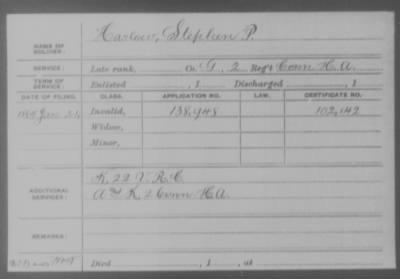 NAME OF SOLDIER: Harlow, Stephen P.
SERVICE: Late rank, Co. G, 2 Reg't Conn H.A.
TERM OF SERVICE: Enlisted , 1 Discharged , 1
DATE OF FILING. CLASS. APPLICATION NO. LAW. CERTIFICATE NO.
Invalid, 138,948 102,142
Widow,
Minor,
ADDITIONAL SERVICES: K, 22 V.R.C.
And K, 2 Conn H.A.
REMARKS:
Died , 1 , at